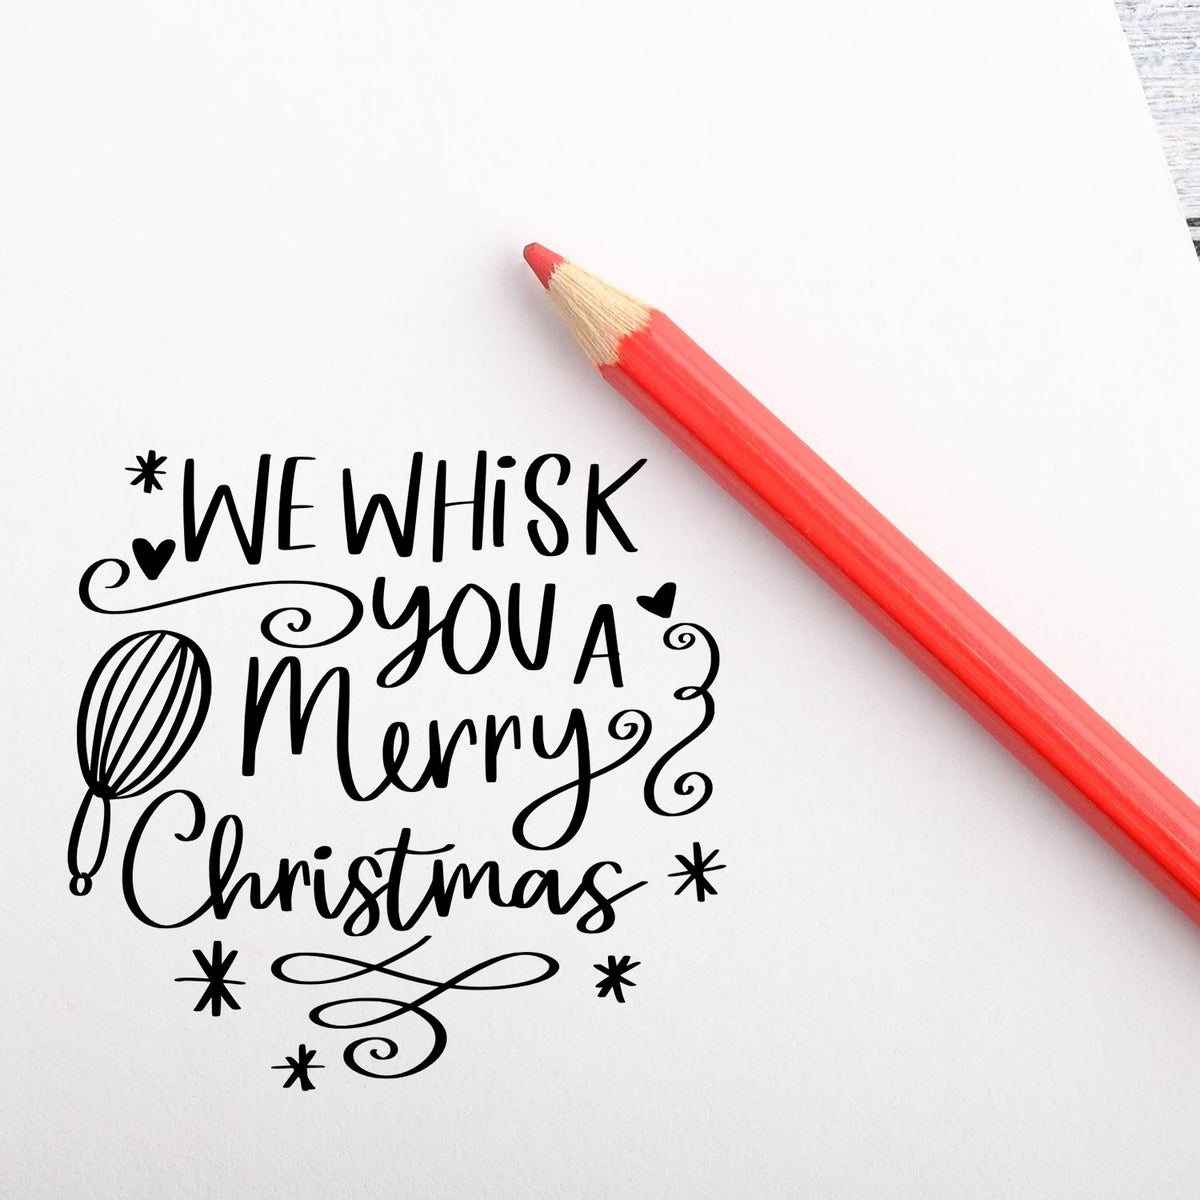 WE WHiSK
YOU A
Merry
Christmas